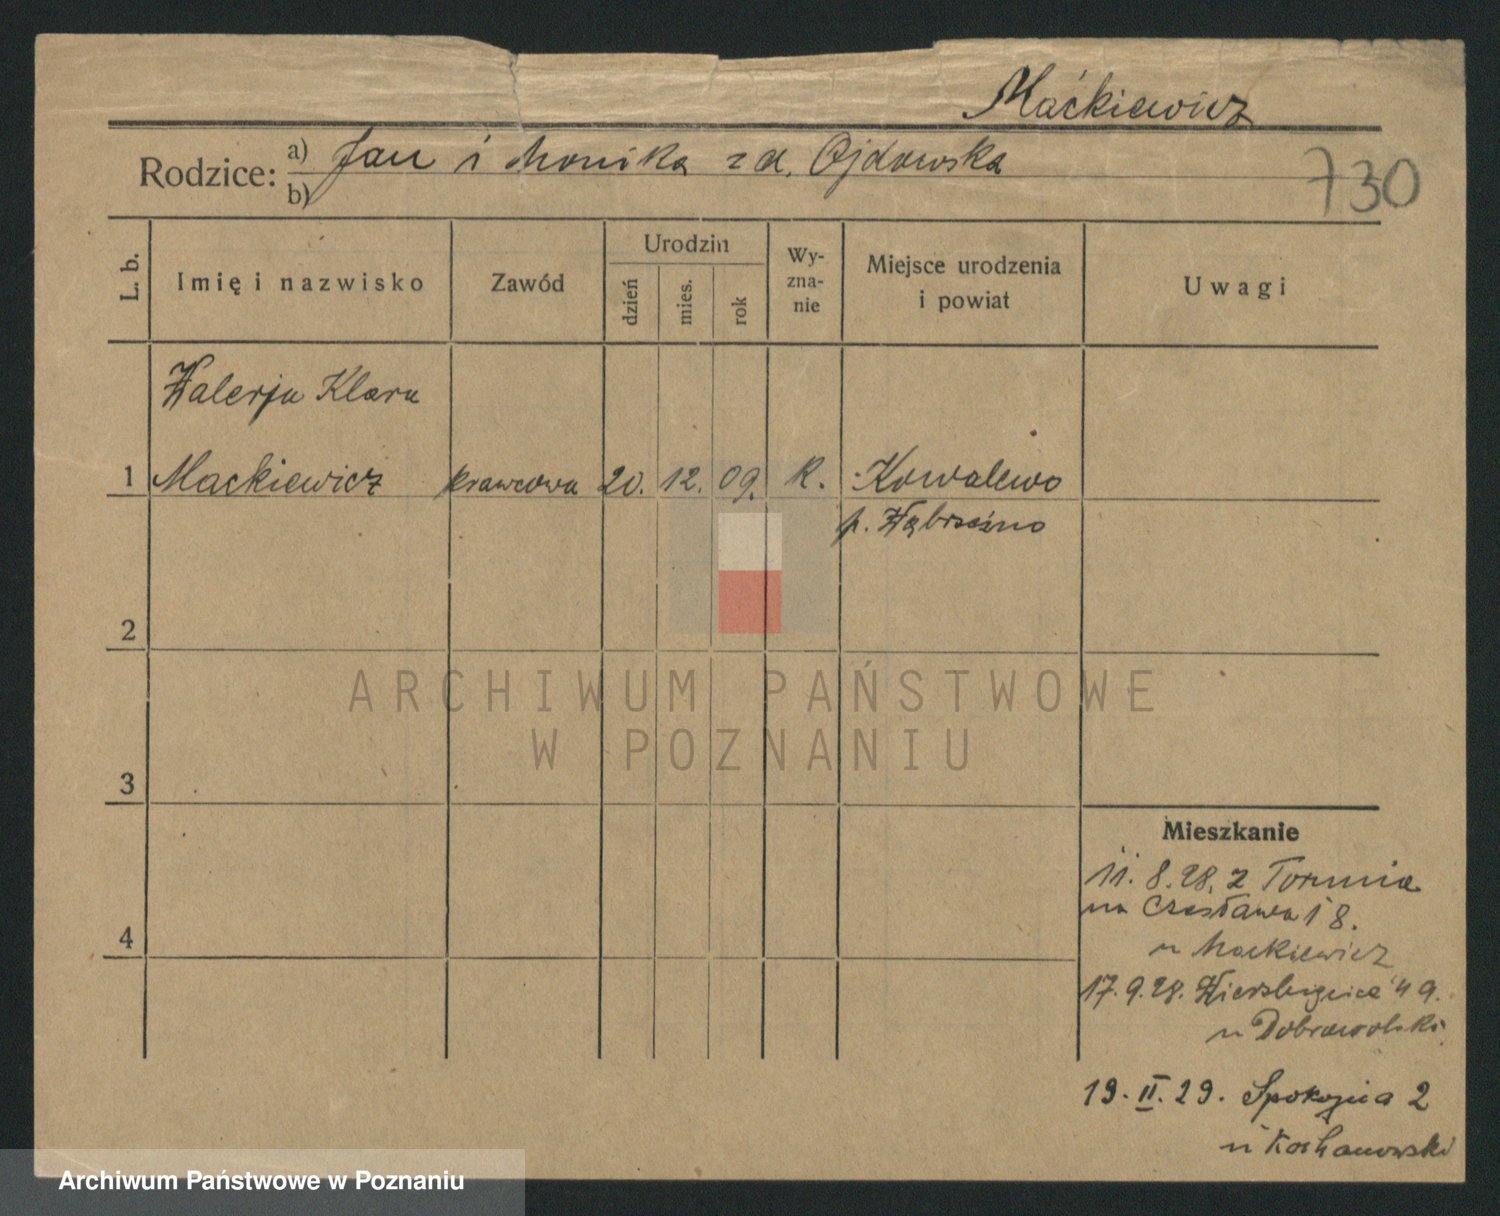 Maćkiewicz
Rodzice: a) Jan i Monika z d. Ojdowska
b)
730
L. b. Imię i nazwisko Zawód Urodzin dzień mies. rok Wy-zna-nie Miejsce urodzenia i powiat Uwagi
Walerja Klara
1 Mackiewicz krawcowa 20. 12. 09. R. Kowalewo
p. Wąbrzeźno
2
ARCHIWUM PAŃSTWOWE
W POZNANIU
3
Mieszkanie
11. 8. 28. z Torunia
na Czesława 18.
u Mackiewicz
4
17. 9. 28. Wierzbięcice 49.
u Dobrowolski
19. II. 29. Spokojna 2
u Kochanowski
Archiwum Państwowe w Poznaniu